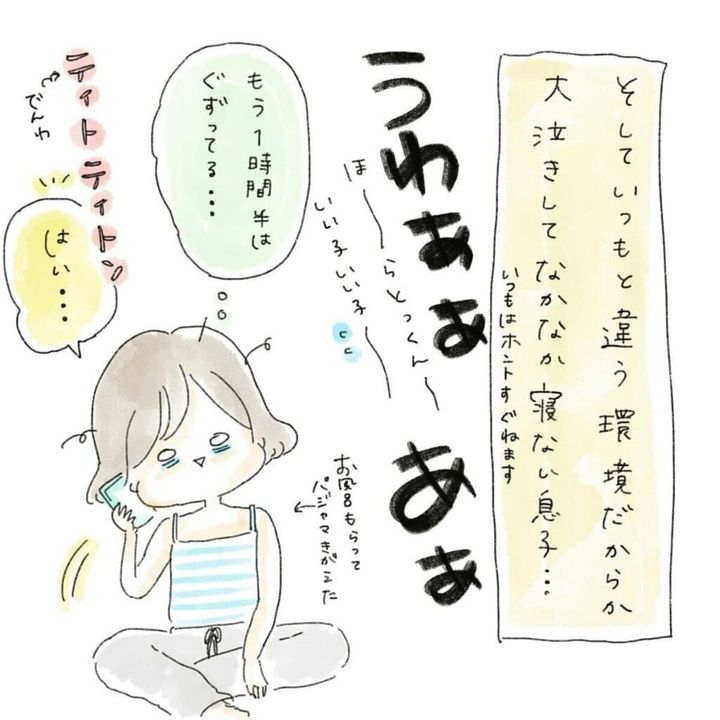 そしていつもと違う環境だからか
大泣きしてなかなか寝ない息子…
いつもはホントすぐねます
うわぁぁ
あぁ
ほ〜らとっくん〜
いい子いい子〜
もう1時間半は
ぐずってる…
ティトティトン
でんわ
はい…
お風呂もらって
パジャマきがえた